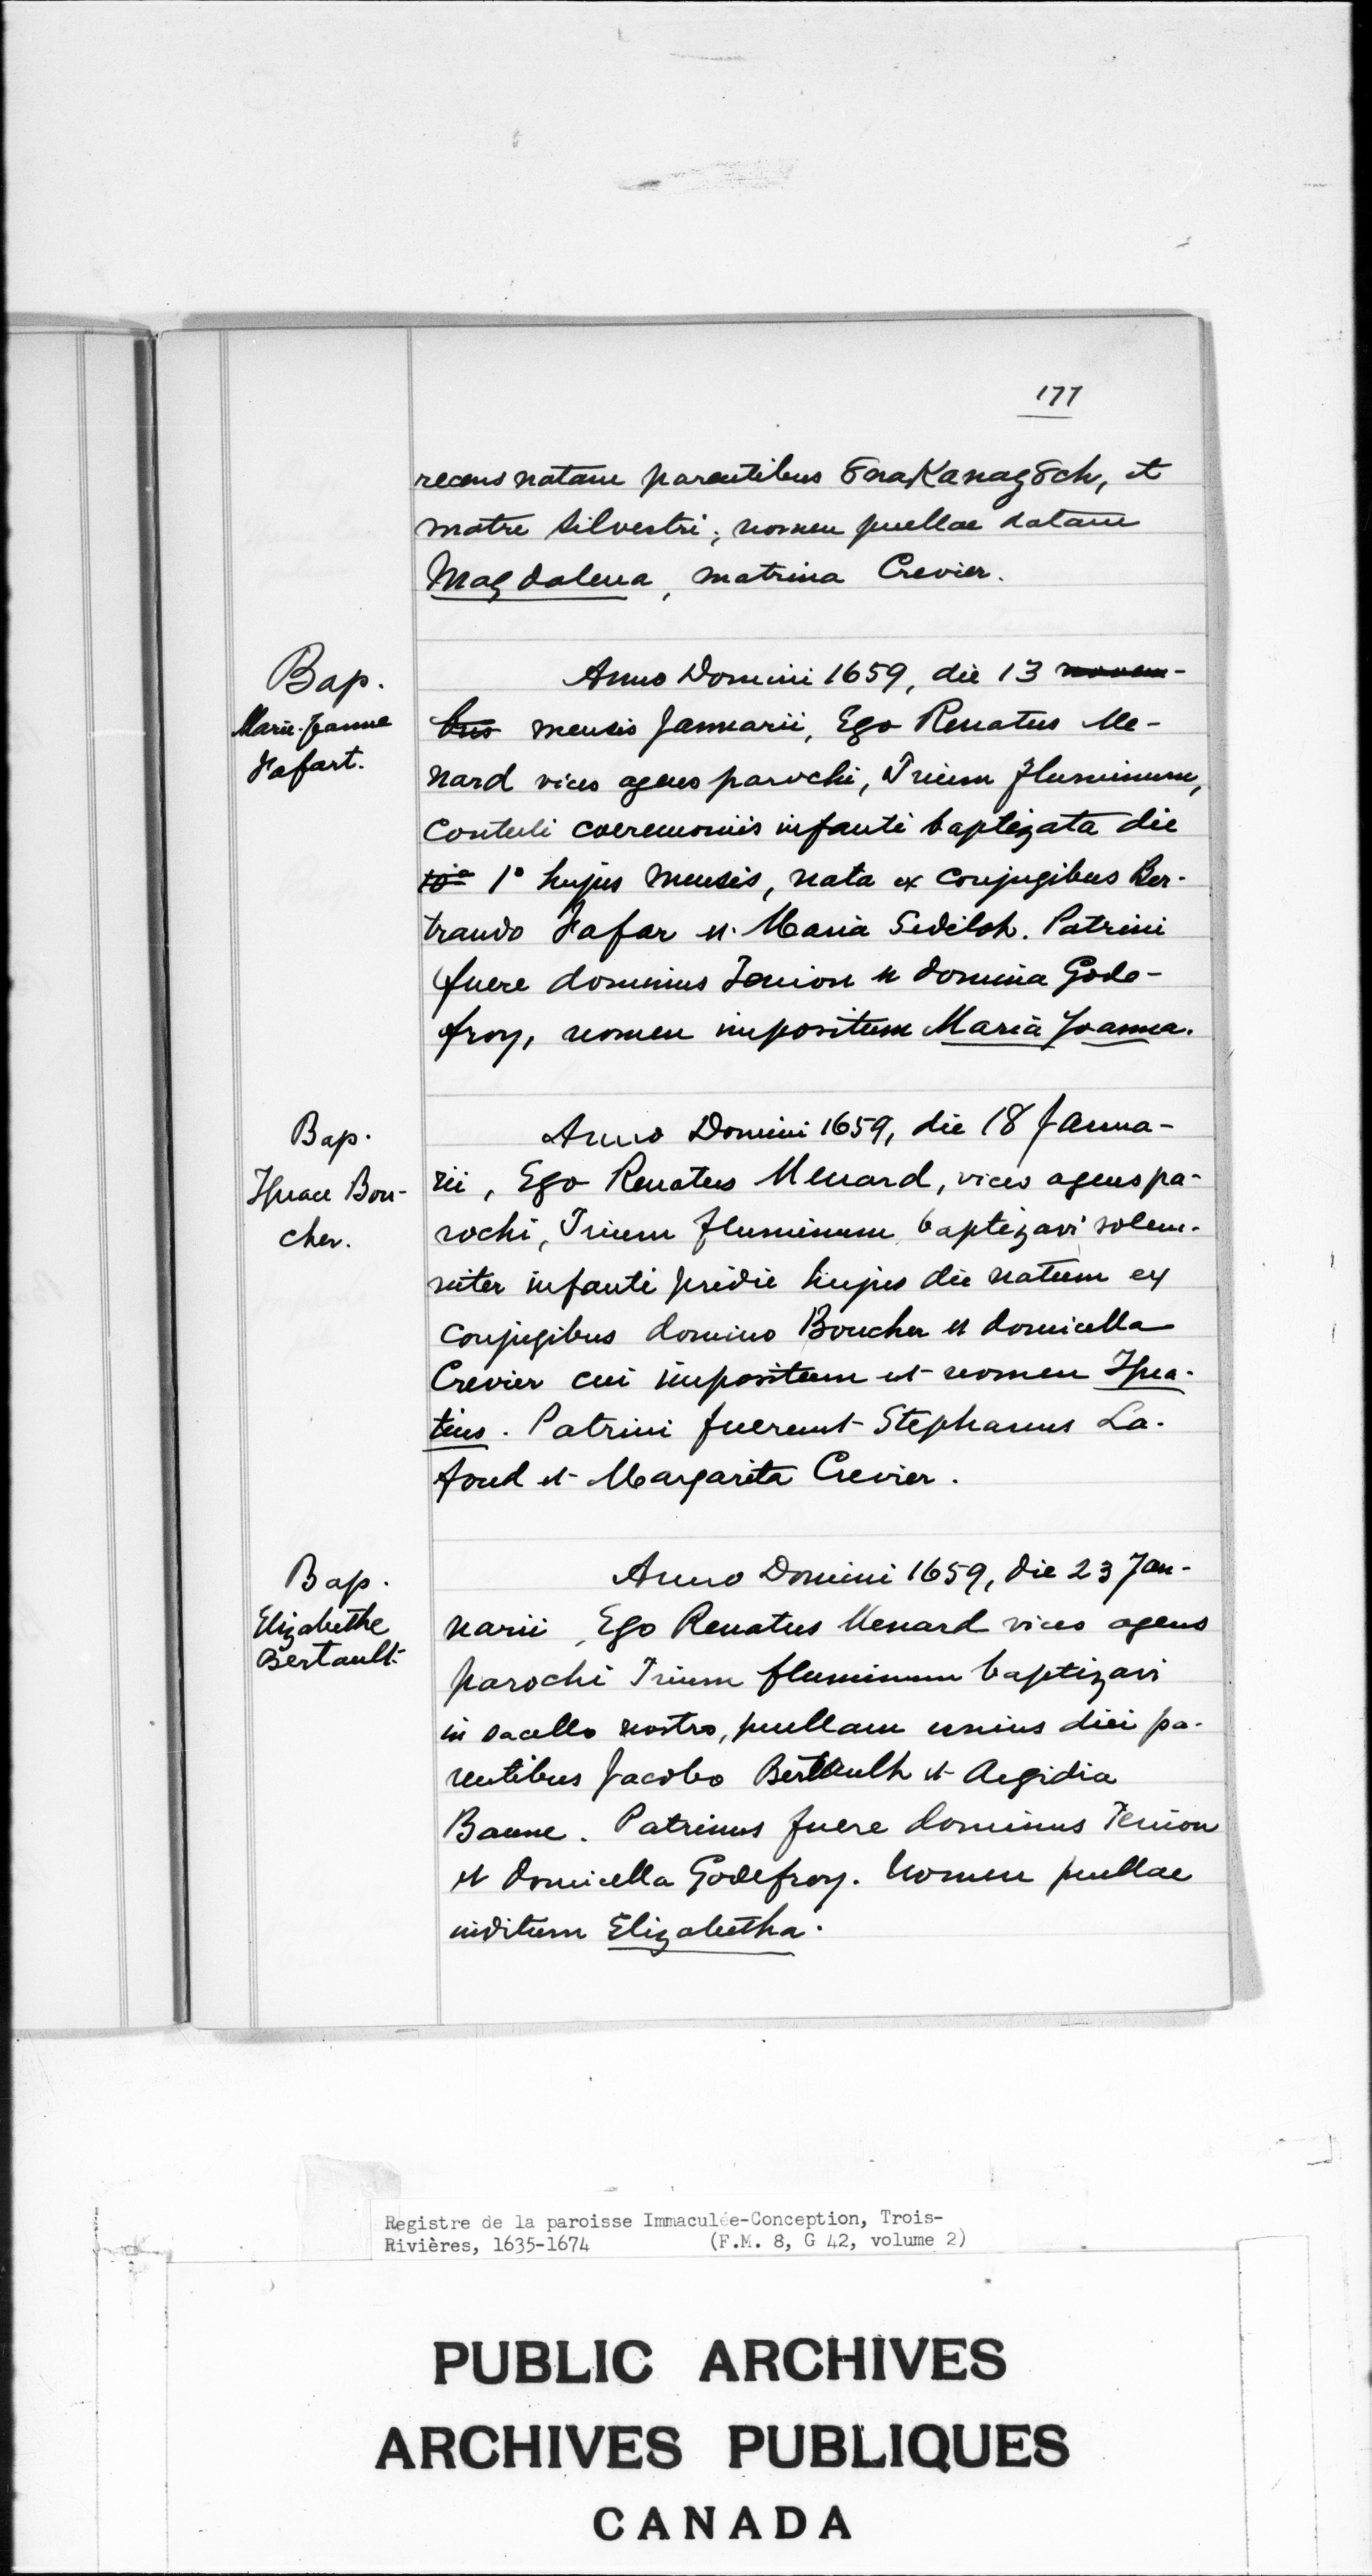 177
recens natam parentibus 8naKanag8ch, et
matre silvestri; nomen puellae datam
Magdalena, matrina Crevier.
Bap.
Marie-Jeanne
Fafart.
Anno Domini 1659, die 13 novem-
bris mensis Januarii, Ego Renatus Me-
nard vices agens parochi, Trium fluminum,
Contuli coeremoniis infanti baptizata die
10a 1° hujus mensis, nata ex conjugibus Ber-
trando Fafar et Maria Sediloh. Patrini
fuere dominus Tenion et domina Gode-
froy, nomen impositum Maria Joanna.
Bap.
Ignace Bou-
cher.
Anno Domini 1659, die 18 Janua-
rii, Ego Renatus Menard, vices agens pa-
rochi, Trium fluminum baptizavi solem-
niter infanti pridie hujus die natum ex
conjugibus domino Boucher et domicella
Crevier cui impositum est nomen Igna-
tius. Patrini fuerunt Stephanus La-
fond et Margarita Crevier.
Bap.
Elizabethe
Bertault
Anno Domini 1659, die 23 Jan-
narii, Ego Renatus Menard vices agens
parochi Trium fluminum baptizavi
in sacello nostro, puellam unius diei pa-
rentibus Jacobo Bertaulh et Aegidia
Banne. Patrinus fuere dominus Tenion
et domicella Godefroy. Nomen puellae
inditum Elizabetha.
Registre de la paroisse Immaculée-Conception, Trois-
Rivières, 1635-1674 (F.M. 8, G 42, volume 2)
PUBLIC ARCHIVES
ARCHIVES PUBLIQUES
CANADA